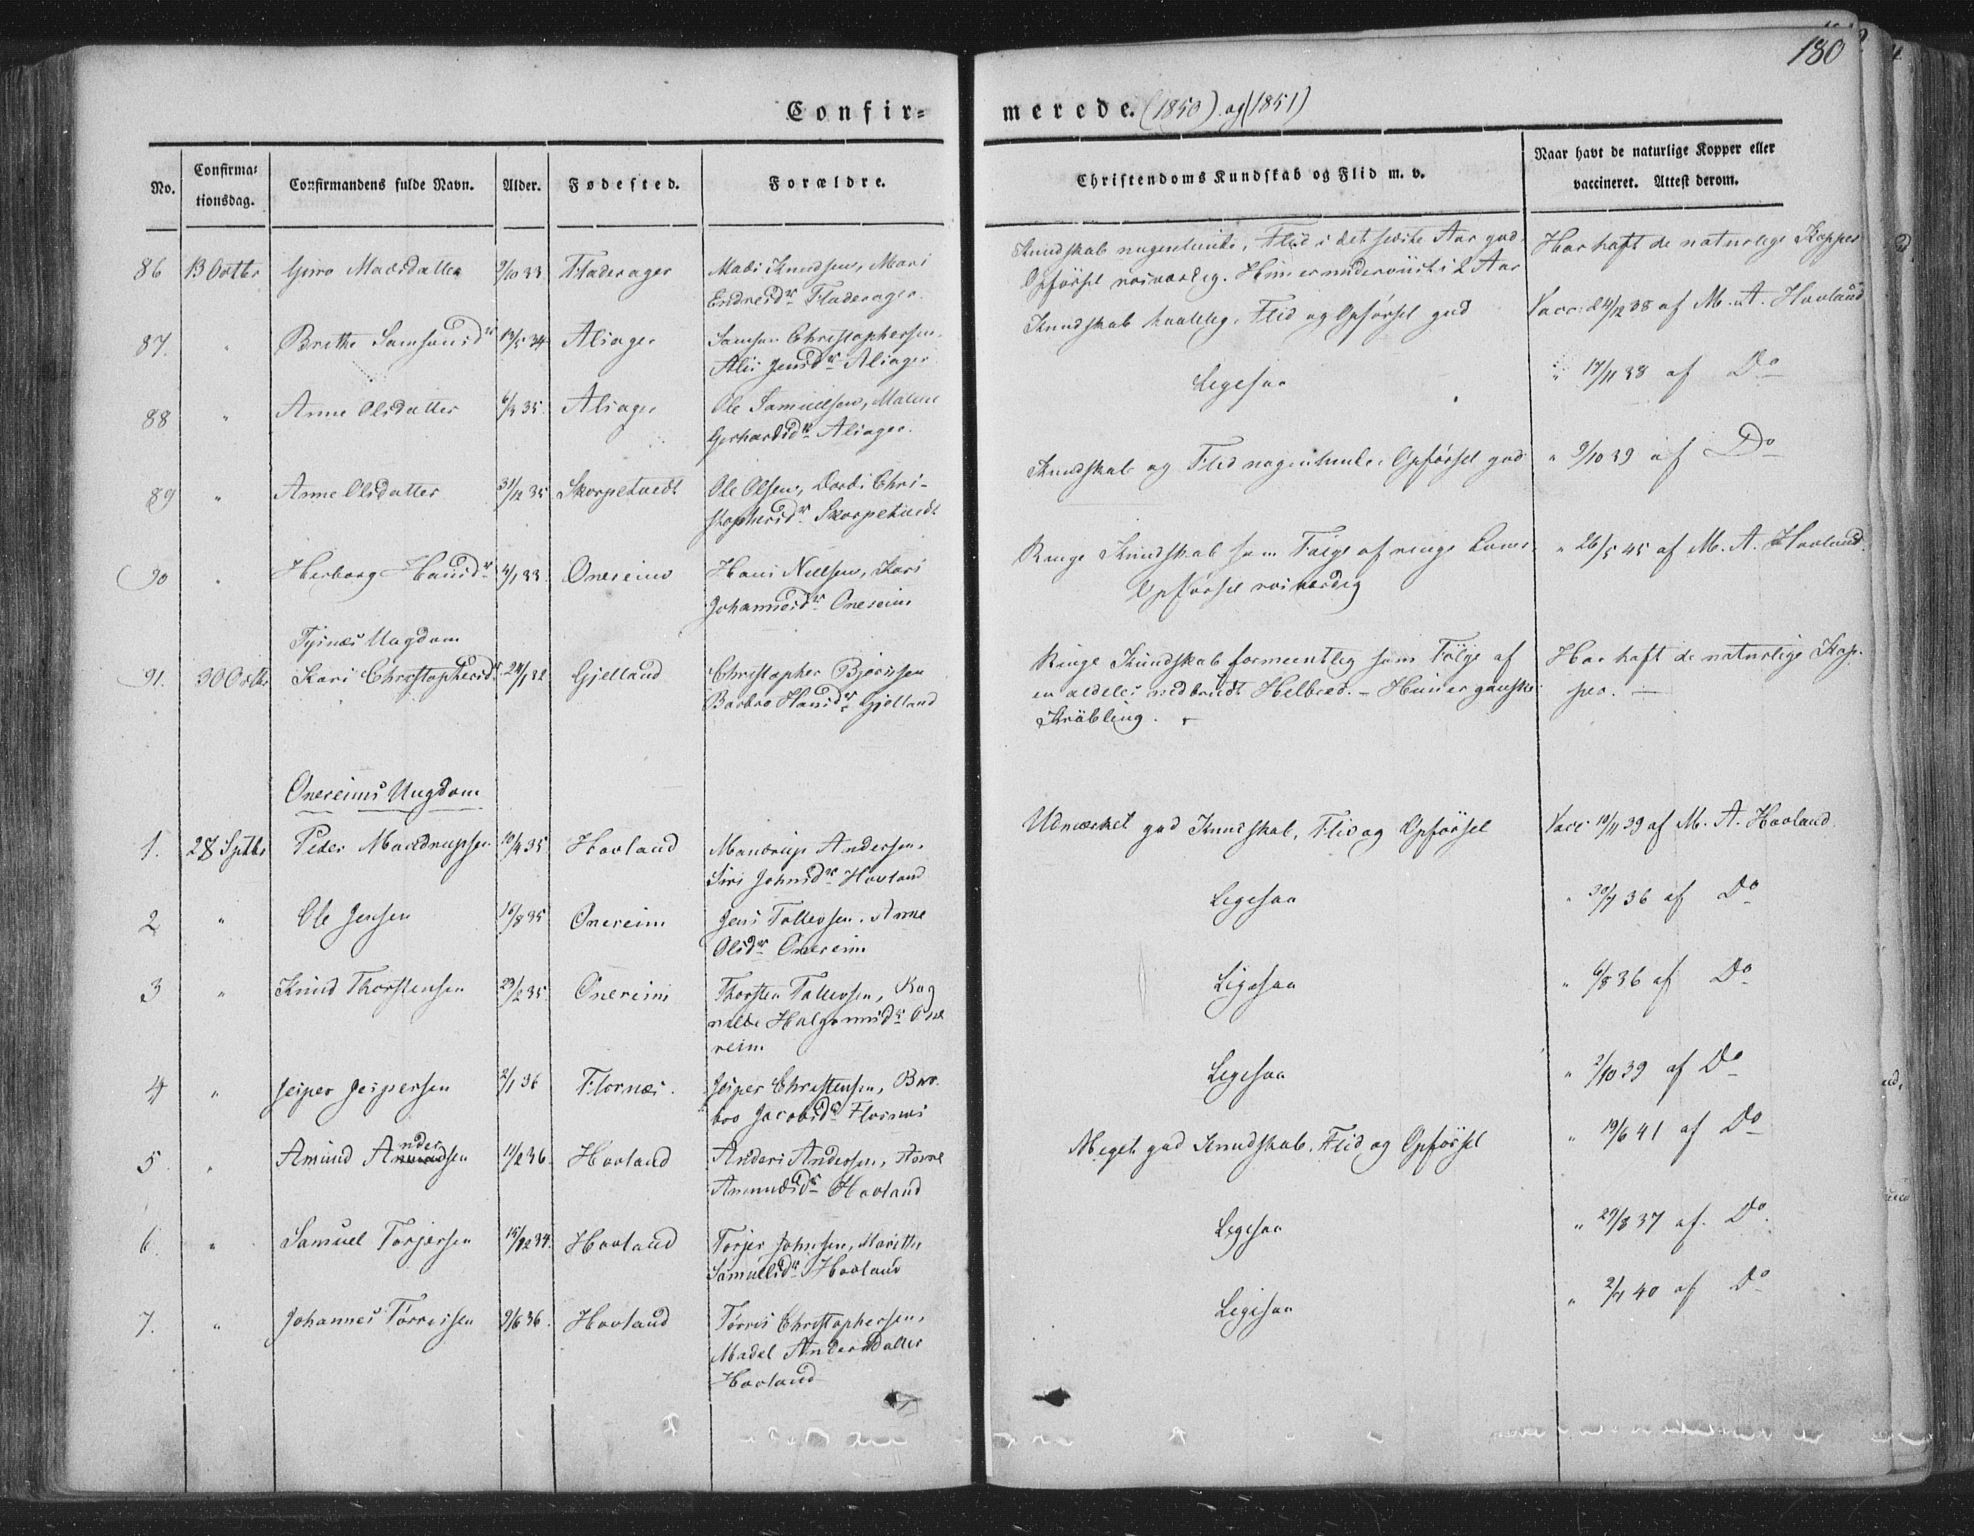 180
Confirmerede. (1850) og (1851)
No.
Confirmationsdag.
Confirmandens fulde Navn.
Alder.
Fødested.
Forældre.
Christendoms Kundskab og Flid m. v.
Naar havt de naturlige Kopper eller
vaccineret. Attest derom.
86 13 Octbr Guro Madsdatter 9/10 33 Fladerager Mads Knudsen, Mari
Endresdr Fladerager.
Kundskab nogenlunde, Flid i det sidste Aar god
Opførsel roesværdig. Hun er underviist i 2 Aar
Har haft de naturlige Kopper
87. " Brithe Samsonsdr 19/5 34 Aliager Samson Christophersen
Alis Jensdr Aliager
Kundskab taalelig, Flid og Opførsel god
Vacc: 24/12 38 af M. A. Hovland
88 " Anne Olsdatter 6/3 35 Aliager Ole Samuelsen, Malene
Gerhardsdr Aliager.
Ligesaa
" 17/11 38 af Do
89 " Anne Olsdatter 31/12 35 Skorpetvedt Ole Olsen, Dordi Chri-
stophersdr Skorpetvedt
Kundskab og Flid nogenlunde, Opførsel god
" 9/10 39 af Do
90 " Herborg Hansdr 4/1 33 Onereim Hans Nielsen, Kari
Johannesdr Onereim
Ringe Kundskab som Følge af ringe Evner.
Opførsel roesværdig
" 26/5 45 af M. A. Hovland.
Tysnæs Ungdom
91. 30 Octbr Kari Christophersdr 24/1 32 Gjelland Christopher Bjørnsen
Barbro Hansdr Gjelland
Ringe Kundskab formeentlig som Følge af
en aldeles nedbrudt Helbred. – Hun er ganske
Krøbling.
Har haft de naturlige Kop-
per. —
Onereims Ungdom
1. 28 Septbr Peder Mandrupsen 10/4 35 Hovland Mandrup Andersen,
Siri Johnsdr Hovland
Udmærket god Kundskab, Flid og Opførsel
Vacc: 10/11 39 af M. A. Hovland
2 " Ole Jensen 16/8 35 Onereim Jens Tollevsen, Anne
Olsdr Onereim
Ligesaa
" 30/7 36 af Do
3 " Knud Thorstensen 23/2 35 Onereim Thorsten Tollevsen, Rag
nilde Halgrimsdr One
reim
Ligesaa
" 6/8 36 af Do
4 " Jesper Jespersen 2/1 36 Flornæs. Jesper Christensen, Bar-
bro Jacobsdr Flornæs
Ligesaa
" 2/10 39 af Do
5 " Amund Andersen 11/2 36. Hovland Anders Andersen, Anne
Amundsdr Hovland
Meget god Kundskab, Flid og Opførsel
" 19/6 41 af Do
6. " Samuel Torjersen 15/12 34. Hovland Torjer Johnsen, Marithe
Samuelsdr Hovland
Ligesaa
" 29/8 37 af. Do.
7. " Johannes Tørressen 9/6 36. Hovland Tørris Christophersen,
Madel Andersdatter
Hovland
Ligesaa
" 2/7 40 af Do